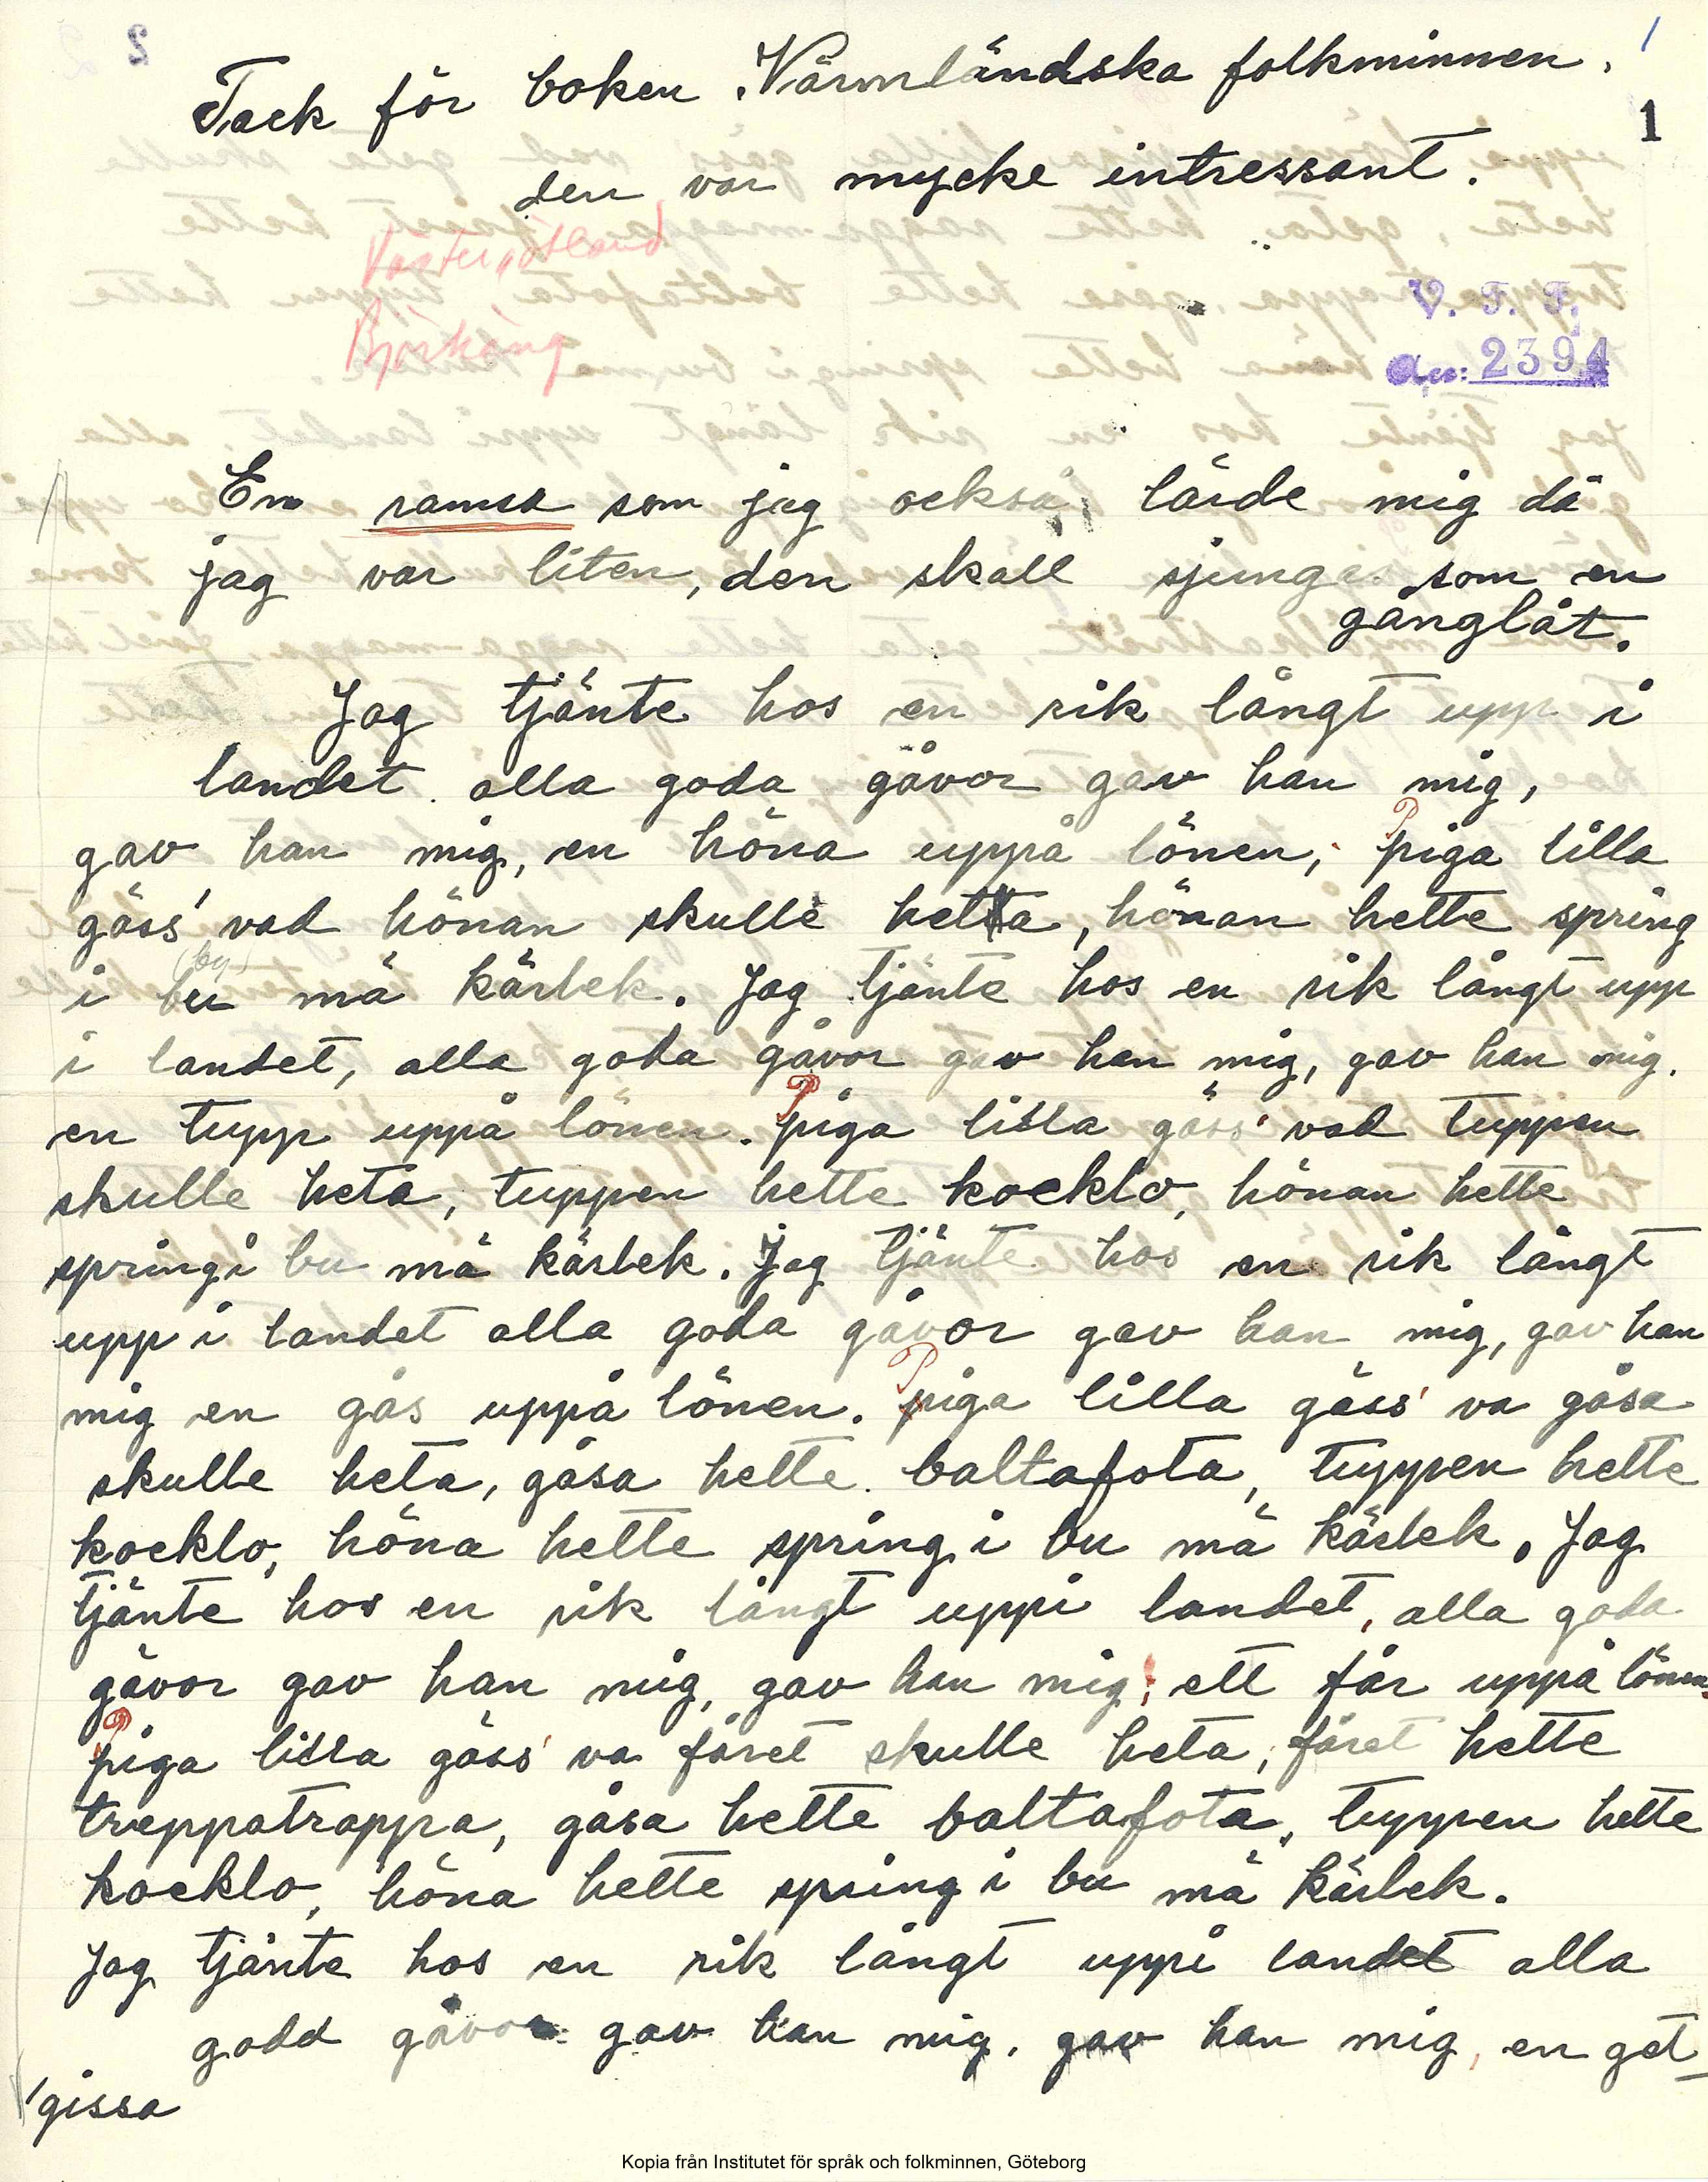 1
Tack för boken "Värmländska folkminnen.
1
den var mycke intressant.
Västergötland
V. F. F.
Björkäng
Acc: 2394
En ramsa som jag också lärde mig då
jag var liten, den skall sjungas som en
gånglåt.
Jag tjänte hos en rik långt upp i
landet. alla goda gåvor gav han mig,
gav han mig, en höna uppå lönen, Piga lilla
gäss' vad hönan skulle hetta, hönan hette spring
(by)
i bu mä kärlek. Jag tjänte hos en rik långt upp
i landet, alla goda gåvor gav han mig, gav han mig.
en tupp uppå lönen. Piga lilla gäss' vad tuppen
skulle heta, tuppen hette kocklo, hönan hette
spring i bu mä kärlek. Jag tjänte hos en rik långt
upp i landet alla goda gåvor gav han mig, gav han
mig en gås uppå lönen. Piga lilla gäss' va gåsa
skulle heta, gåsa hette baltafota, tuppen hette
kocklo, höna hette spring i bu mä kärlek, Jag
tjänte hos en rik långt uppi landet, alla goda
gåvor gav han mig, gav han mig; ett får uppå lönen.
Piga lilla gäss' va fåret skulle heta, fåret hette
treppatrappa, gåsa hette baltafota, tuppen hette
kocklo, höna hette spring i bu mä kärlek.
Jag tjänte hos en rik långt uppi landet alla
godd gåvor gav han mig, gav han mig, en get
'gissa
Kopia från Institutet för språk och folkminnen, Göteborg